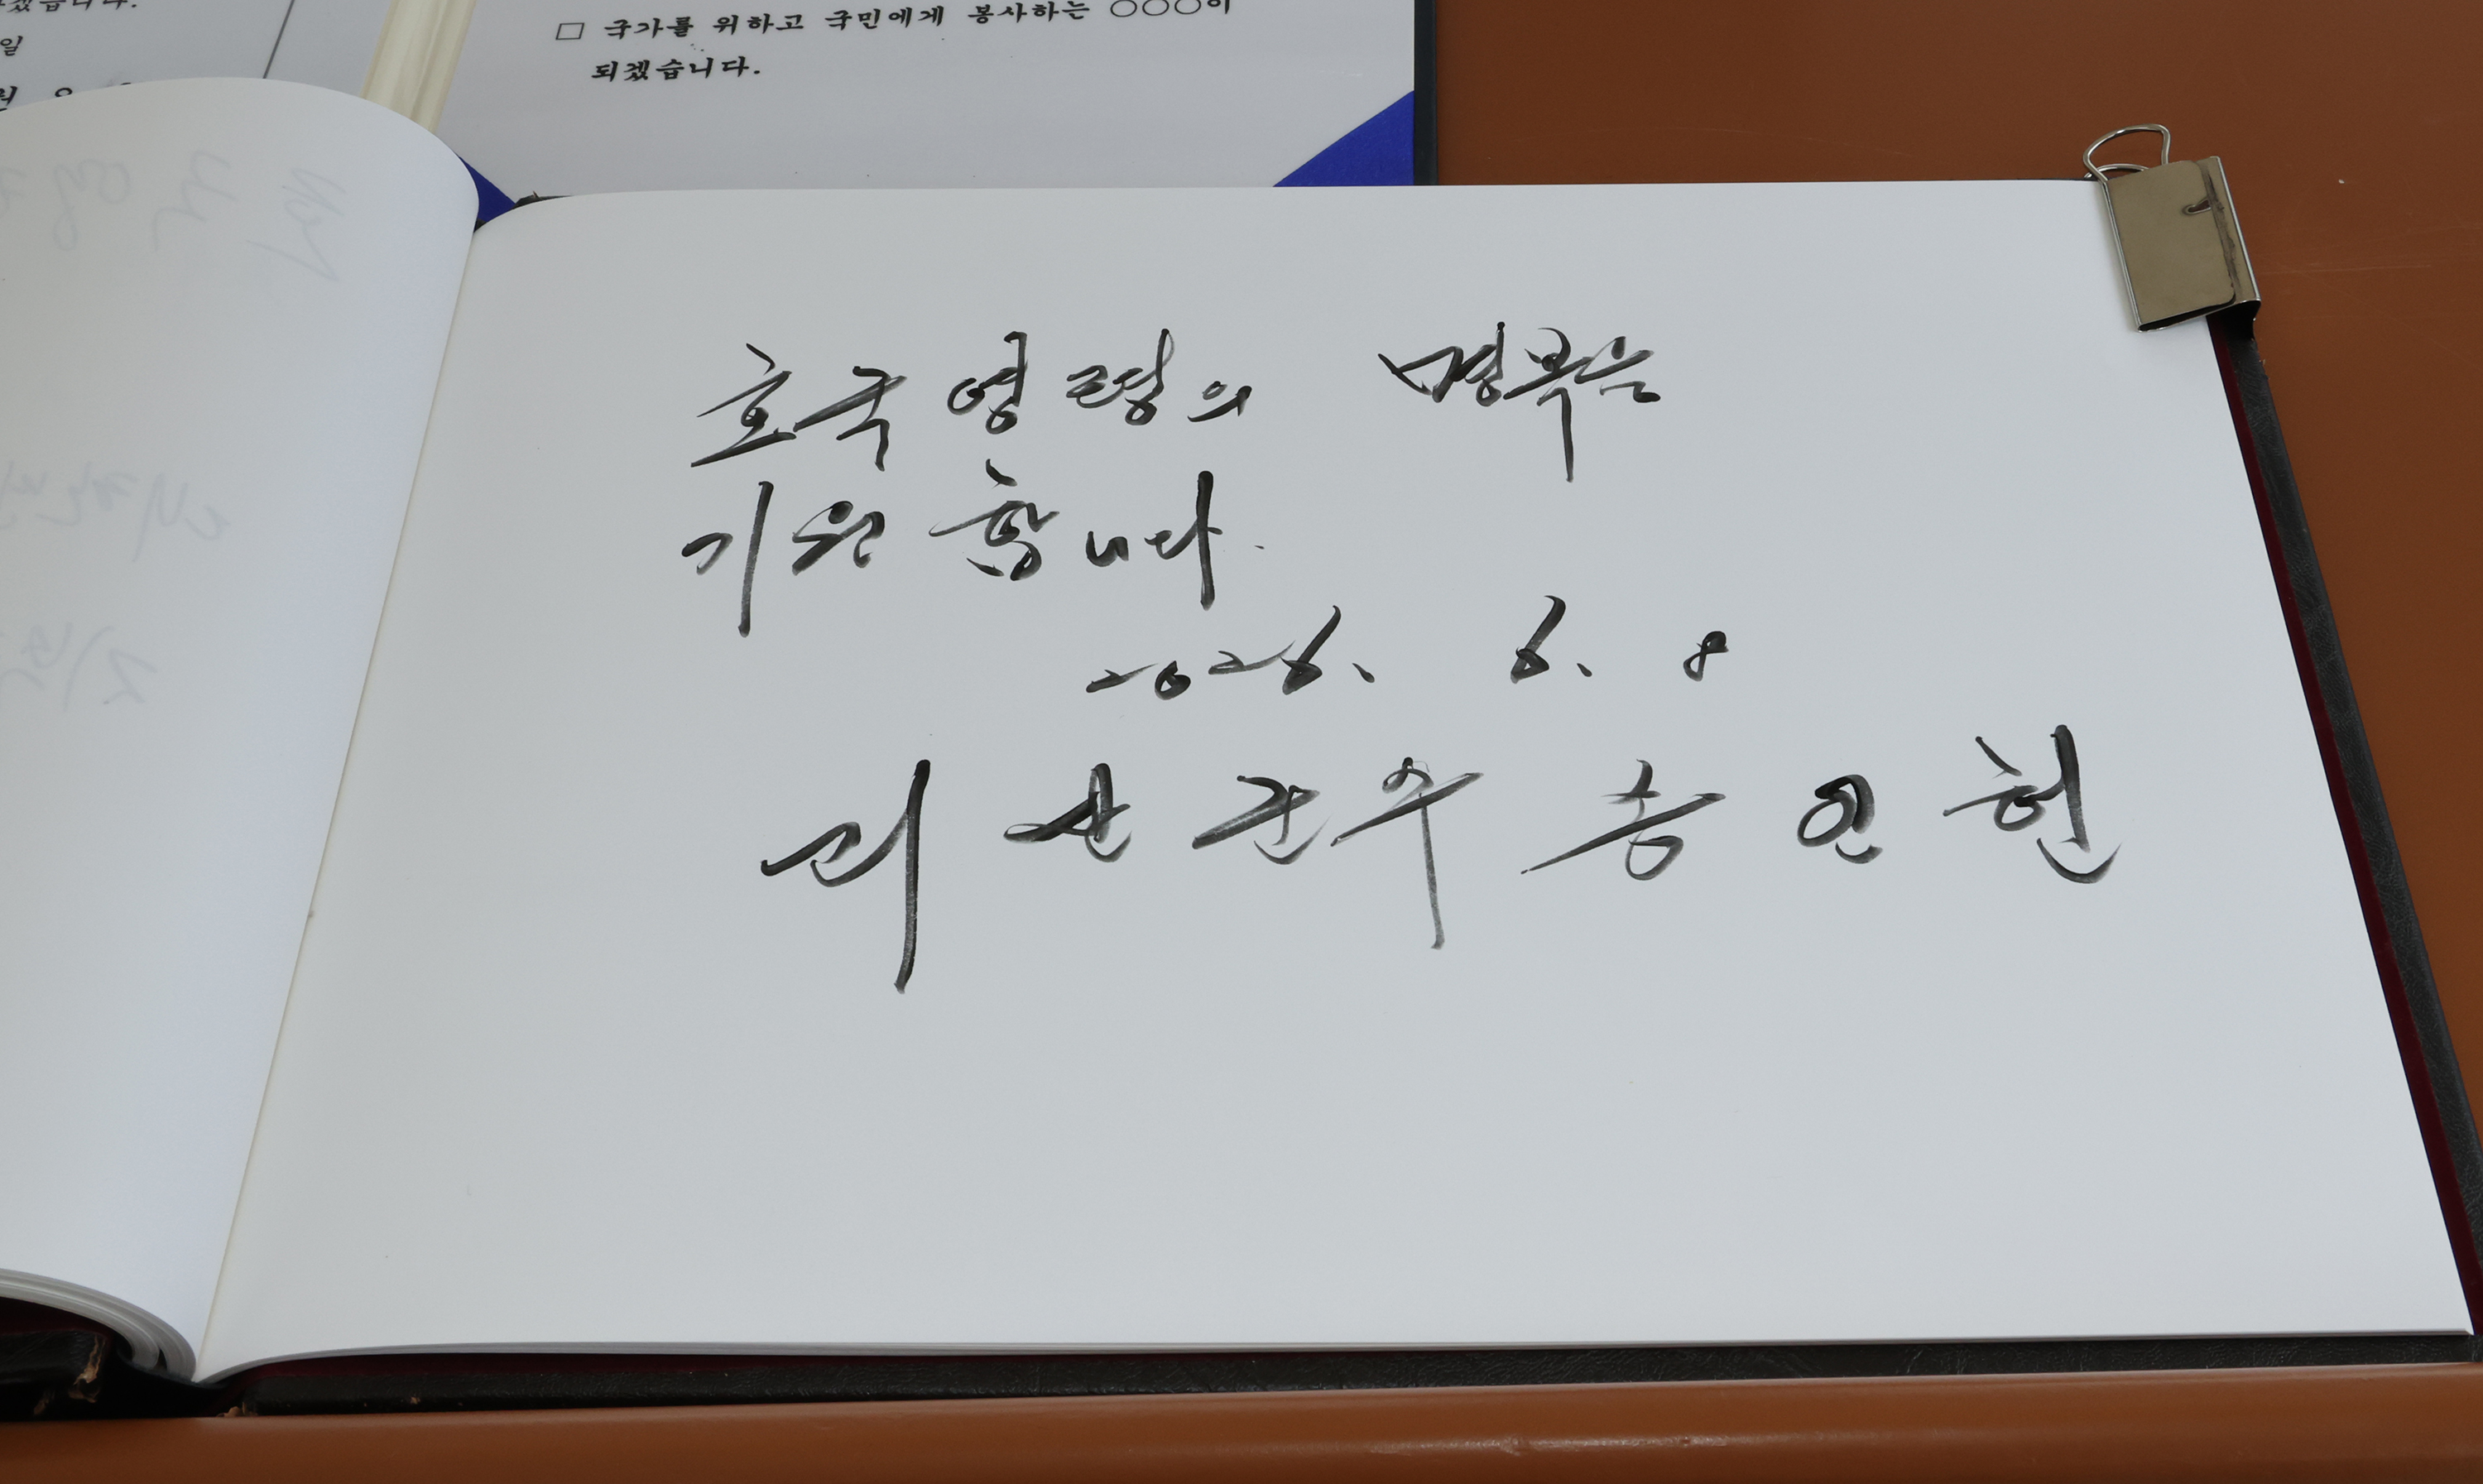 겠습니다.
일
□ 국가를 위하고 국민에게 봉사하는 ○○○이
되겠습니다.
호국영령의 명복을
기원합니다.
2026. 6. 8
송인헌